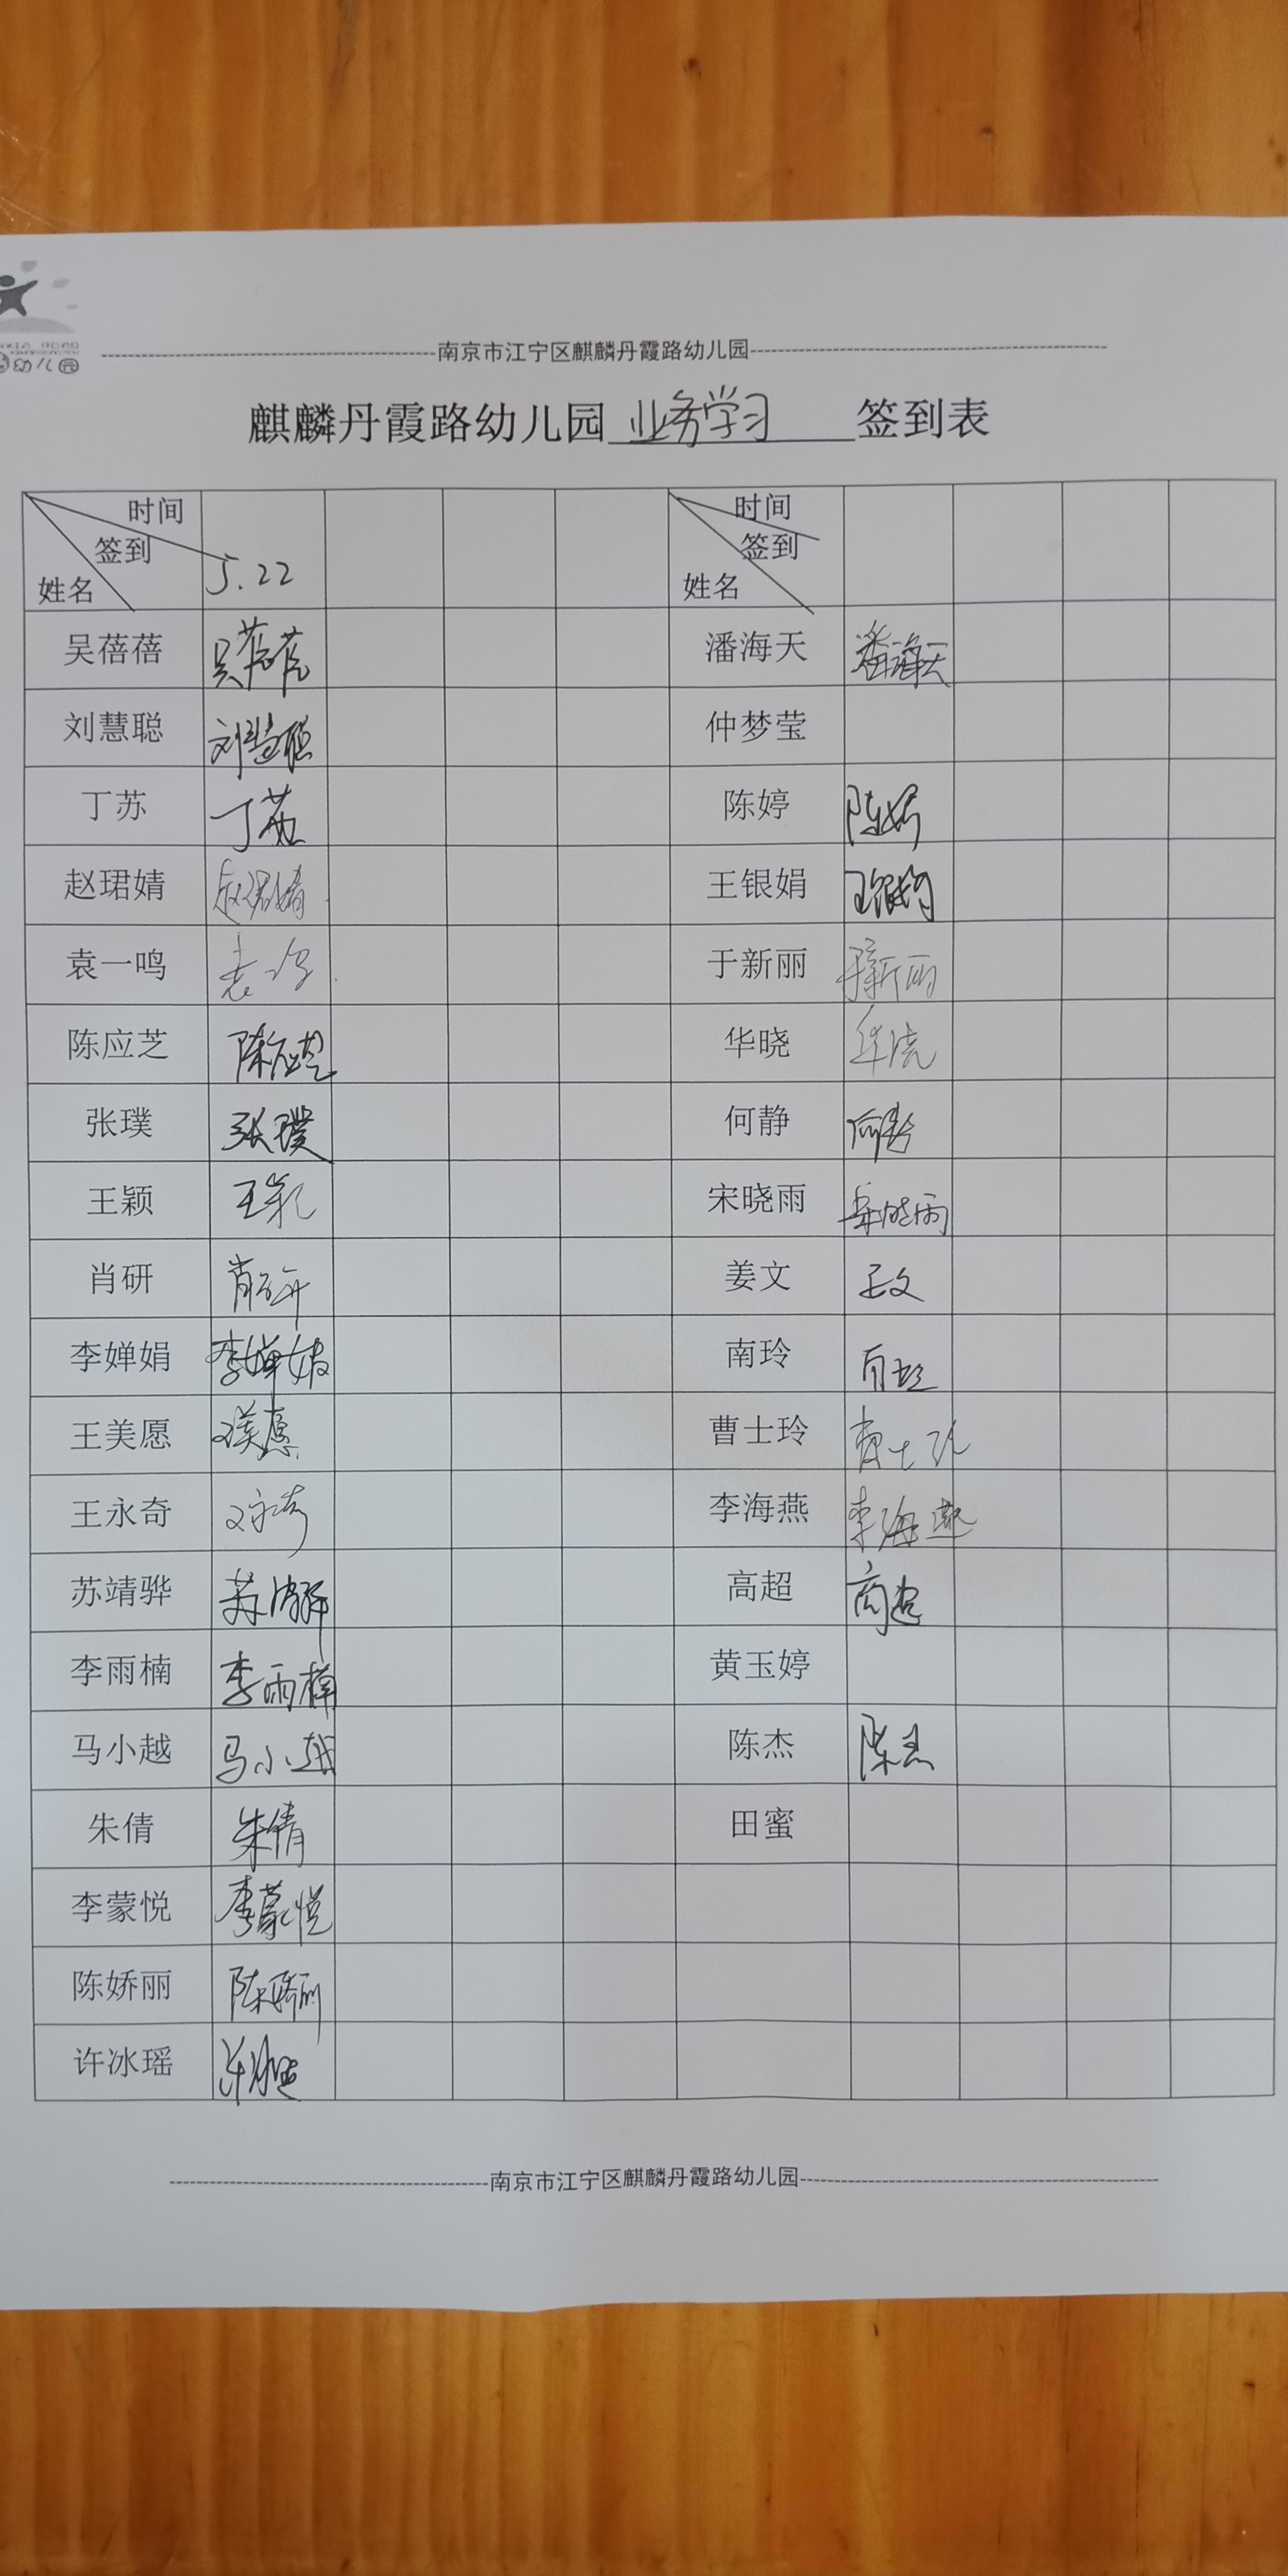 幼儿园
南京市江宁区麒麟丹霞路幼儿园
麒麟丹霞路幼儿园 业务学习 签到表
时间 签到 姓名 5.22 时间 签到 姓名
吴蓓蓓 吴蓓蓓 潘海天 潘海天
刘慧聪 刘慧聪 仲梦莹
丁苏 丁苏 陈婷 陈婷
赵珺婧 赵珺婧 王银娟 王银娟
袁一鸣 袁一鸣 于新丽 于新丽
陈应芝 陈应芝 华晓 华晓
张璞 张璞 何静 何静
王颖 王颖 宋晓雨 宋晓雨
肖研 肖研 姜文 姜文
李婵娟 李婵娟 南玲 南玲
王美愿 王美愿 曹士玲 曹士玲
王永奇 王永奇 李海燕 李海燕
苏靖骅 苏靖骅 高超 高超
李雨楠 李雨楠 黄玉婷
马小越 马小越 陈杰 陈杰
朱倩 朱倩 田蜜
李蒙悦 李蒙悦
陈娇丽 陈娇丽
许冰瑶 许冰瑶
南京市江宁区麒麟丹霞路幼儿园